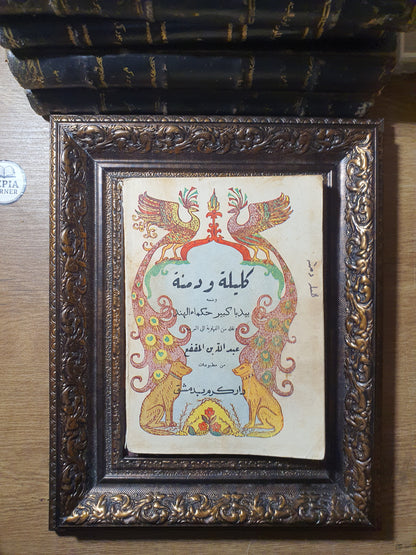 كليلة و دمنة
وضعه
بيدبا كبير حكماء الهند
نقله من الفهلوية الى العربية
عبد الله بن المقفع
من مطبوعات
دار كرم بدمشق
EPIA
ORNER